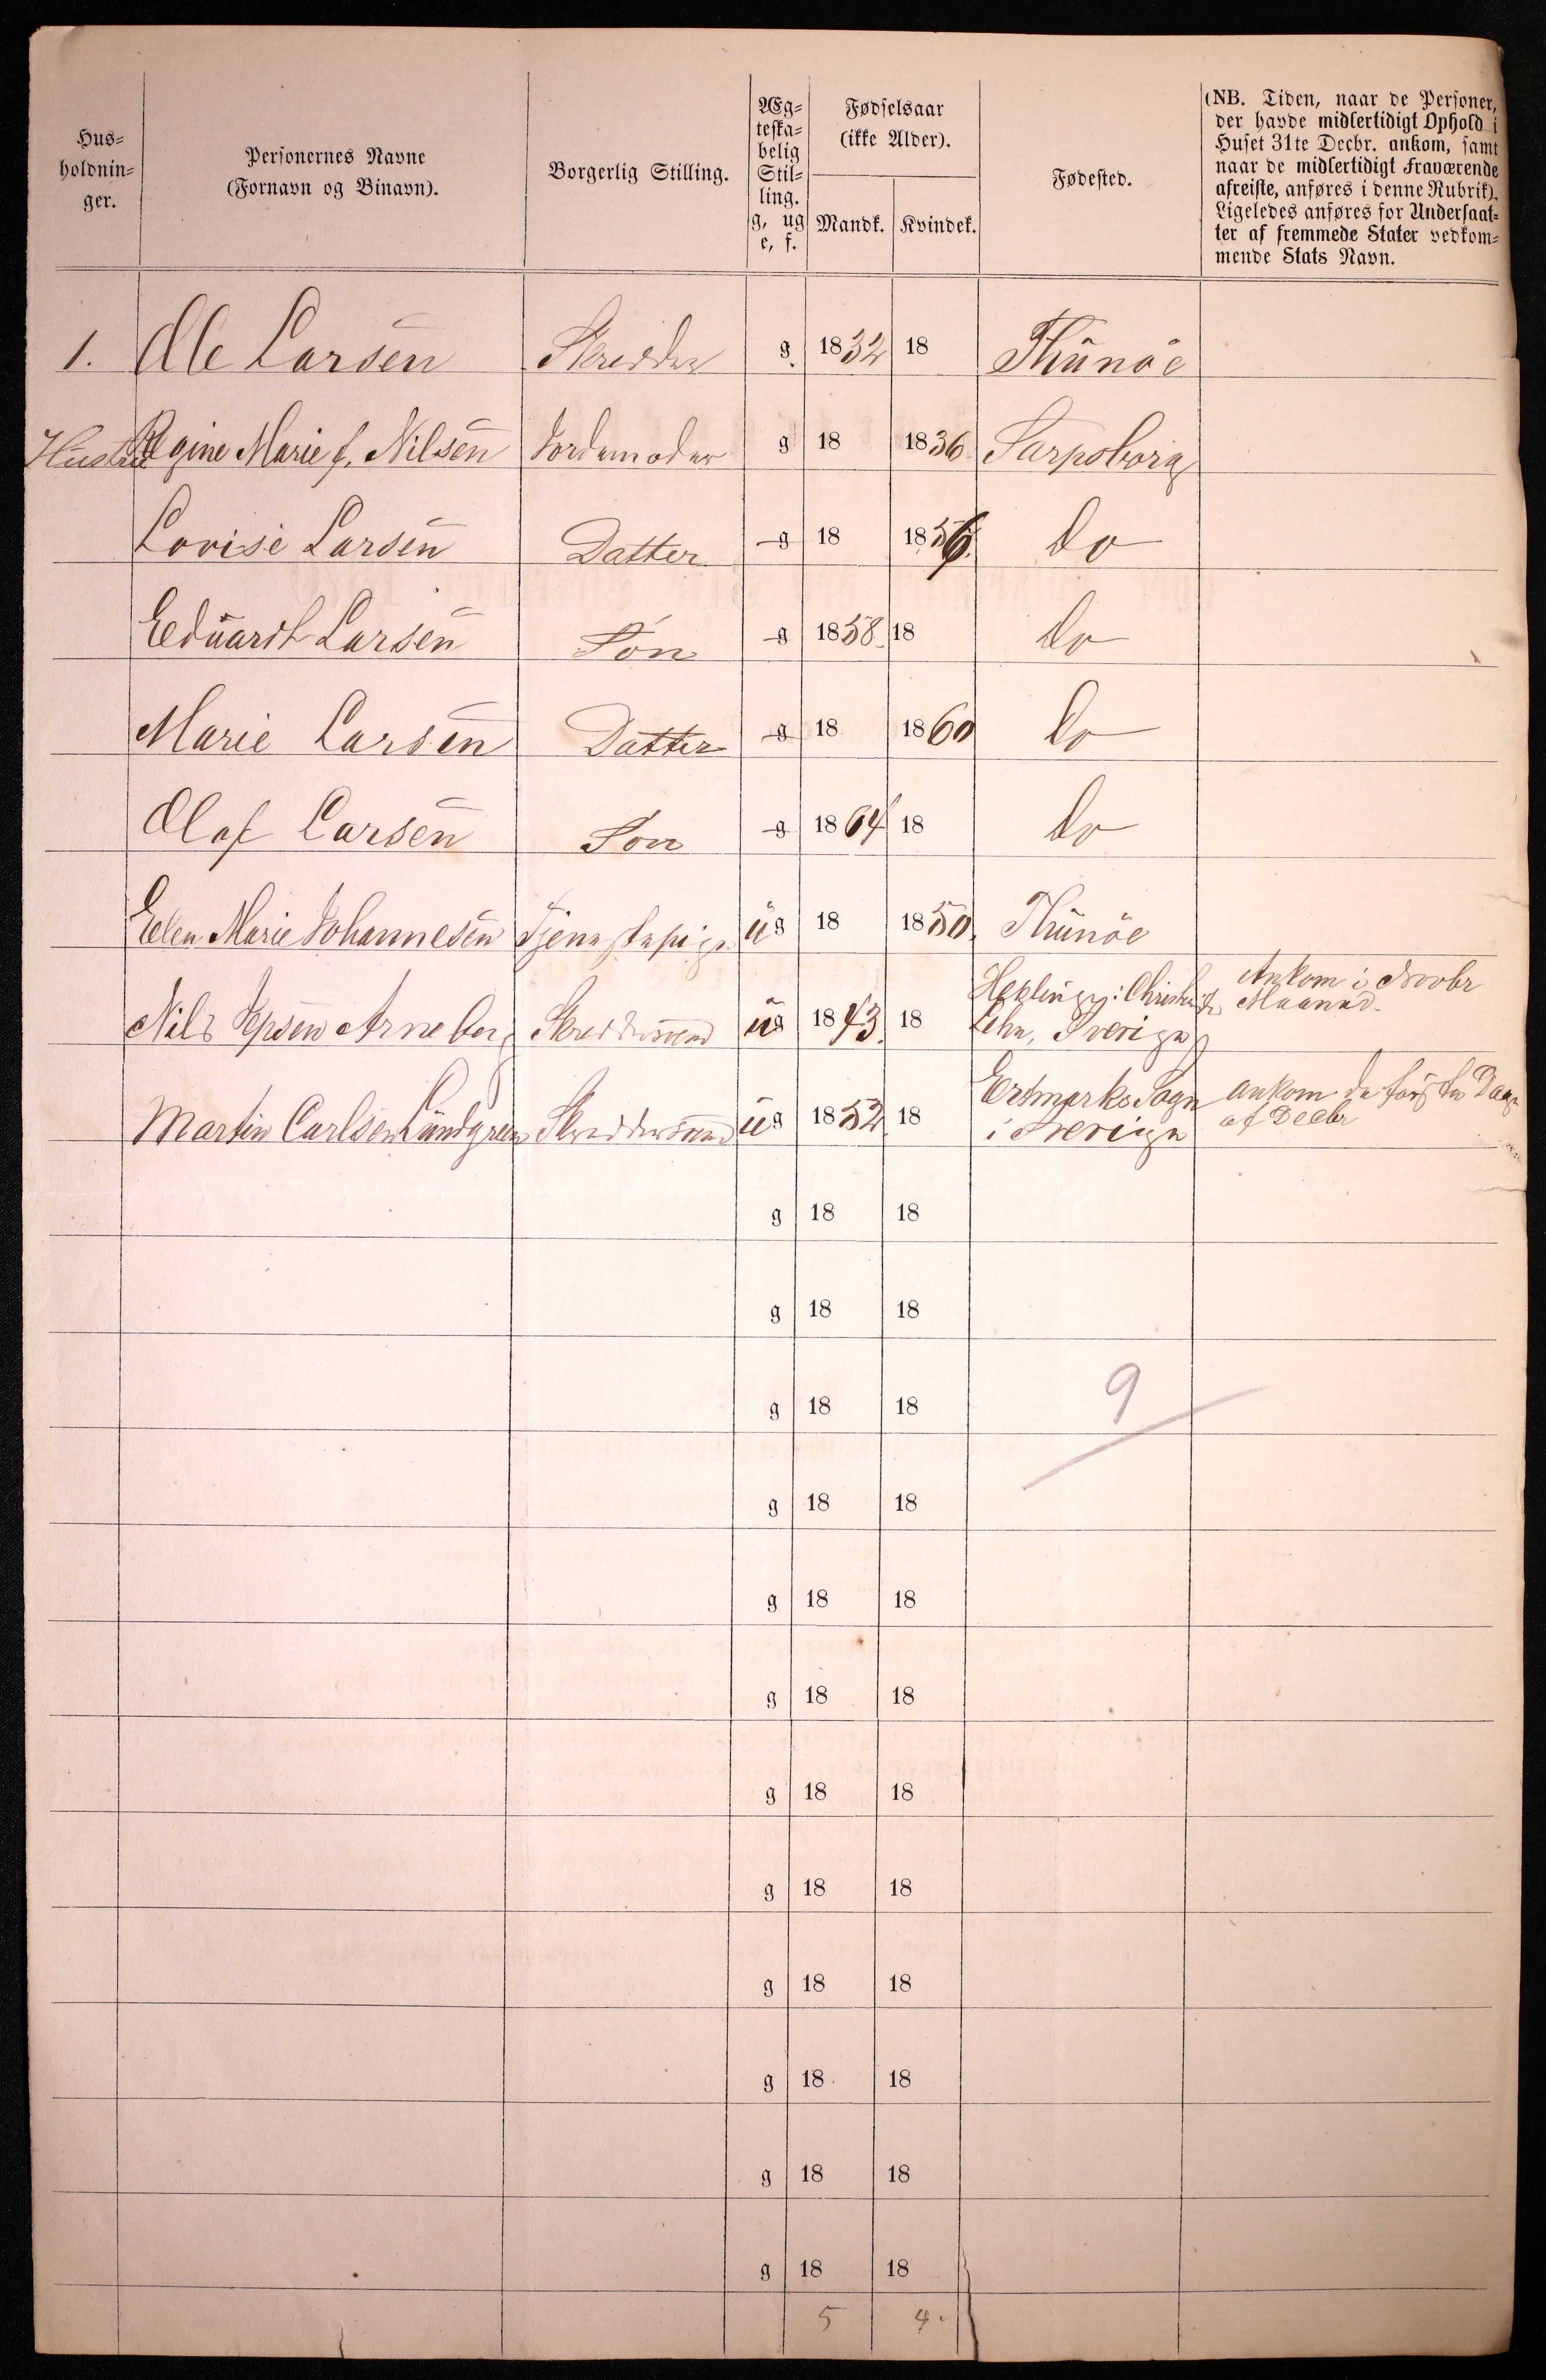 Hus-
holdnin-
ger.
Personernes Navne
(Fornavn og Binavn).
Borgerlig Stilling.
Æg-
teska-
belig
Stil-
ling.
g, ug
e, f.
Fødselsaar
(ikke Alder).
Mandk. Kvindek.
Fødested.
(NB. Tiden, naar de Personer,
der havde midlertidigt Ophold i
Huset 31te Decbr. ankom, samt
naar de midlertidigt fraværende
afreiste, anføres i denne Rubrik).
Ligeledes anføres for Undersaat-
ter af fremmede Stater vedkom-
mende Stats Navn.
1. Ole Larsen Skredder g 1832 18 Thunöe
Hustru Regine Marie f. Nilsen Jordemoder g 18 1836 Sarpsborg
Lovise Larsen Datter g 18 1856 Do
Eduardt Larsen Sön g 1858 18 Do
Marie Larsen Datter g 18 1860 Do
Olaf Larsen Sön g 1864 18 Do
Elen Marie Johannesen Tjenestepige ug 18 1850. Thunöe
Nils Jepsen Arneberg Skreddersvend ug 1843. 18 Lehn, Sverige Ankom i Novbr Maaned.
Martin Carlsen Lundgreen Skreddersvend ug 1852 18 Sogn i Sverige ankom de förste Dage af Decbr
g 18 18
g 18 18
g 18 18 9
g 18 18
g 18 18
g 18 18
g 18 18
g 18 18
g 18 18
g 18 18
g 18 18
g 18 18
5 4.